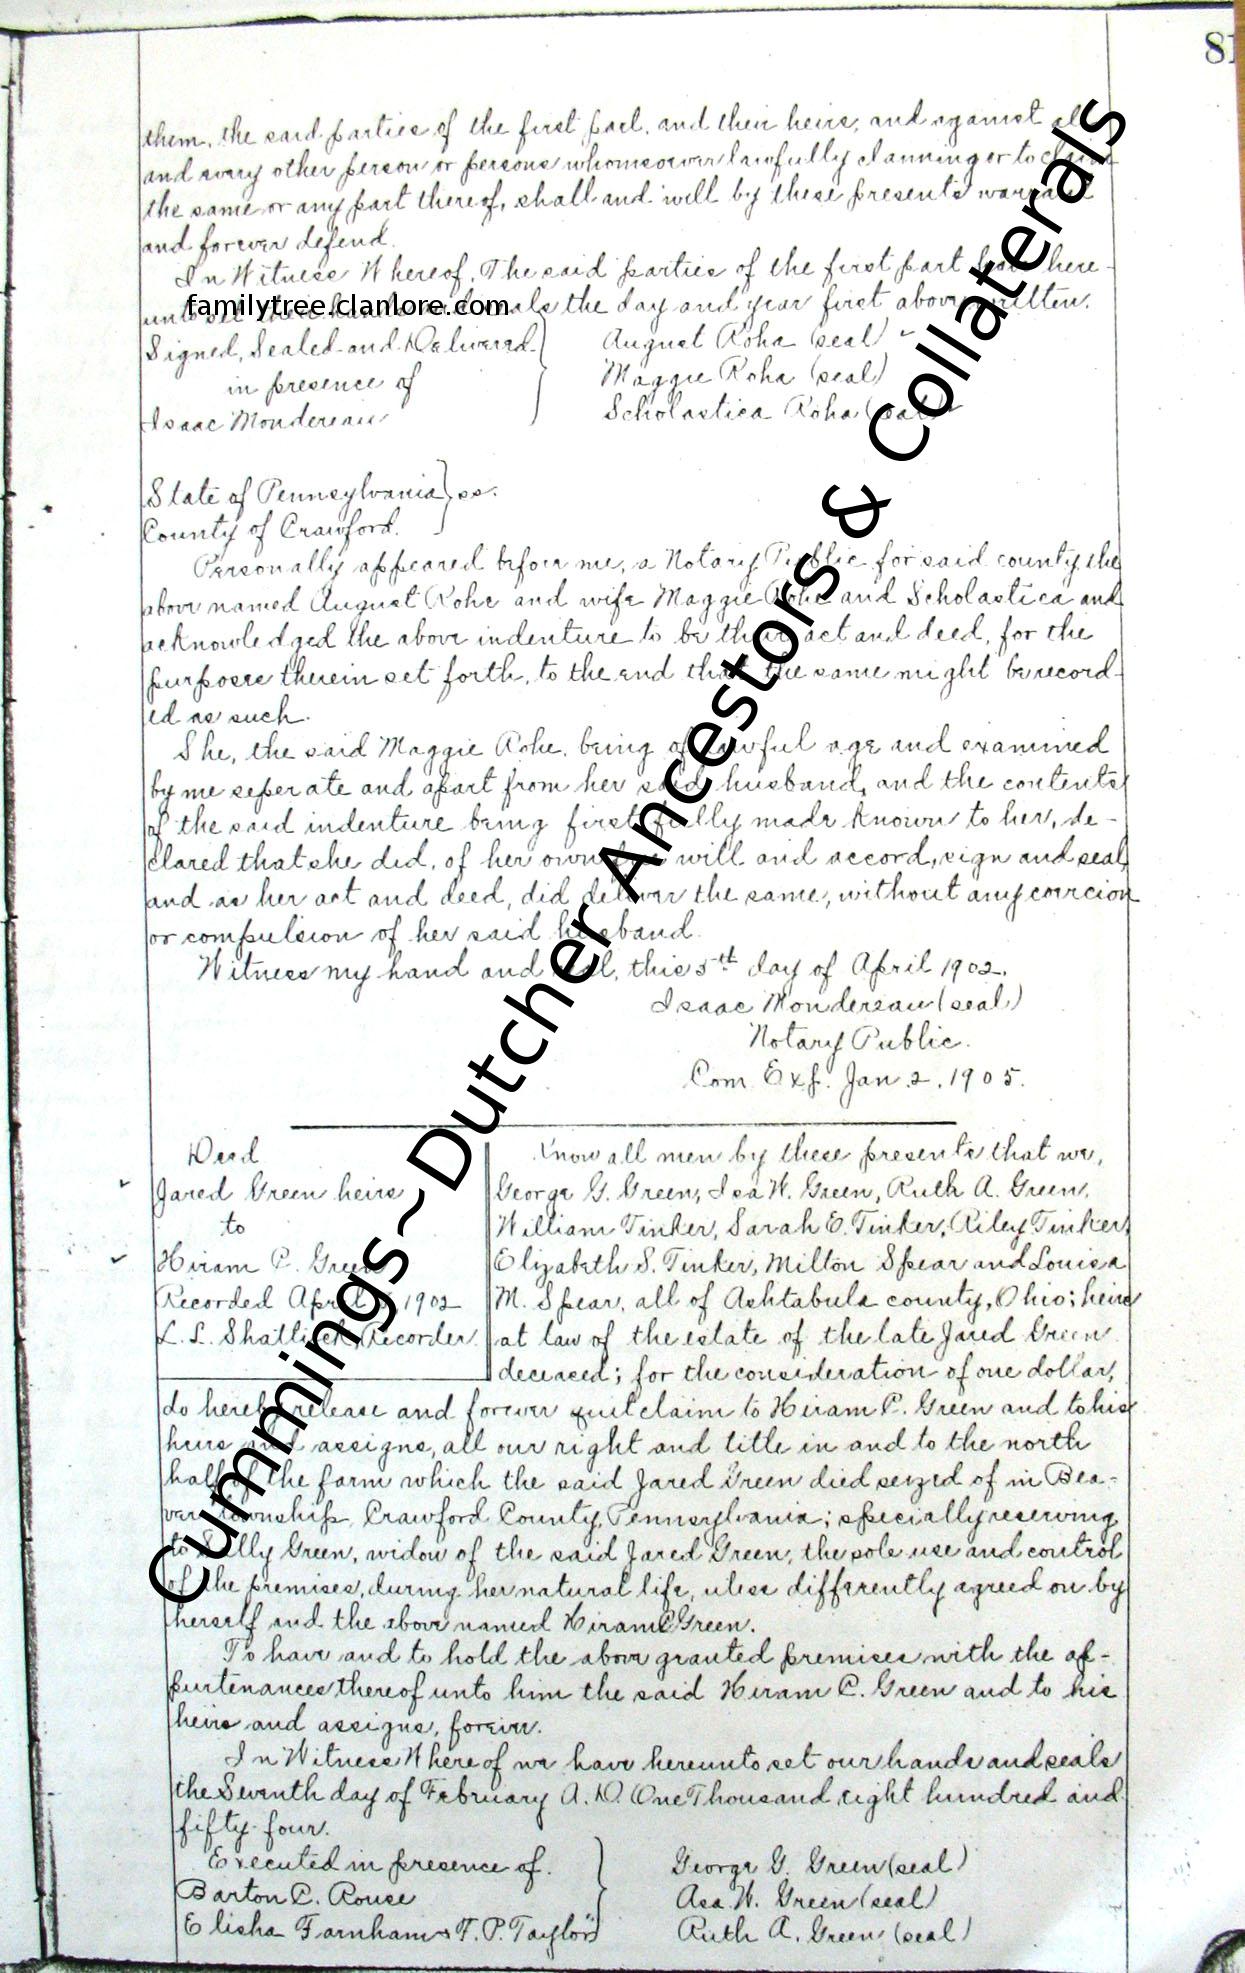 81
them, the said parties of the first part, and their heirs, and against all
and every other person or persons whomsoever lawfully claiming or to claim
the same or any part thereof, shall and will by these presents warrant
and forever defend.
In Witness Whereof, The said parties of the first part have here-
unto set their hands and seals the day and year first above written.
familytree.clanlore.com
Signed, Sealed and Delivered
in presence of
Isaac Mondereau
August Roha (seal)
Maggie Roha (seal)
Scholastica Roha (seal)
State of Pennsylvania } ss.
County of Crawford.
Personally appeared before me, a Notary Public for said county the
above named August Rohe and wife Maggie Rohe and Scholastica and
acknowledged the above indenture to be their act and deed, for the
purposes therein set forth, to the end that the same might be record-
ed as such.
She, the said Maggie Rohe, being of lawful age and examined
by me seperate and apart from her said husband, and the contents
of the said indenture being first fully made known to her, de-
clared that she did, of her own free will and accord, sign and seal,
and as her act and deed, did deliver the same, without any coercion
or compulsion of her said husband.
Witness my hand and seal, this 5th day of April 1902.
Isaac Mondereau (seal)
Notary Public.
Com. Exp. Jan. 2, 1905.
Deed
Jared Green heirs
to
Hiram C. Green
Recorded April 1902
L. L. Shattuck Recorder.
Know all men by these presents that we,
George G. Green, Isa W. Green, Ruth A. Green,
William Tinker, Sarah E. Tinker, Riley Tinker,
Elizabeth S. Tinker, Milton Spear and Louisa
M. Spear, all of Ashtabula county, Ohio; heirs
at law of the estate of the late Jared Green
deceased; for the consideration of one dollar,
do hereby release and forever quit claim to Hiram C. Green and to his
heirs and assigns, all our right and title in and to the north
half of the farm which the said Jared Green died seized of in Bea-
ver township, Crawford County, Pennsylvania; specially reserving
to Sally Green, widow of the said Jared Green, the sole use and control
of the premises, during her natural life, uless differently agreed on by
herself and the above named Hiram C Green.
To have and to hold the above granted premises with the ap-
purtenances thereof unto him the said Hiram C. Green and to his
heirs and assigns, forever.
In Witness Whereof we have hereunto set our hands and seals
the Seventh day of February A.D. One Thousand eight hundred and
fifty-four.
Executed in presence of.
Barton C. Rouse
Elisha Farnham & F. P. Taylor
George G. Green (seal)
Asa W. Green (seal)
Ruth A. Green (seal)
Cummings~Dutcher Ancestors & Collaterals